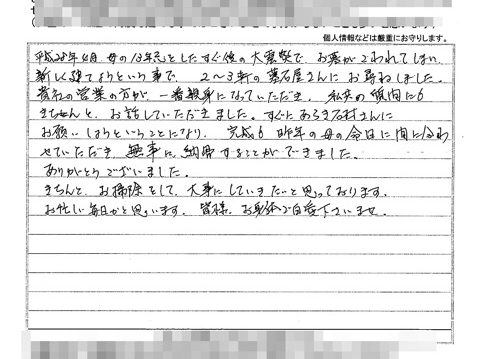 個人情報などは厳重にお守りします。
平成28年4月 母の13年忌としたすぐ後の大震災で、お墓がこわれてしまい
新しく建てようという事で、2〜3軒の墓石屋さんにお尋ねしました。
貴社の営業の方が、一番親身になっていただき、私共の質問にも
きちんと、お話していただきました。すぐに 石材さんに
お願いしようということになり、完成も 昨年の母の命日に間に合わ
せていただき、無事に納骨することができました。
ありがとうございました。
きちんと、お掃除をして、大事にしていきたいと思っております。
お忙しい毎日かと思います。皆様、お身体ご自愛下さいませ。